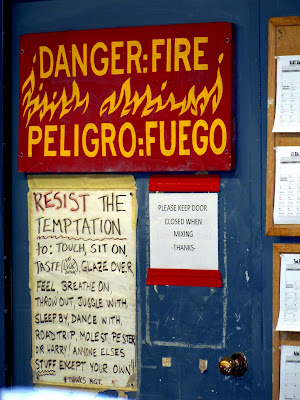 ¡DANGER: FIRE!
PELIGRO: FUEGO
RESIST THE
TEMPTATION
to: TOUCH, SIT ON,
TASTE (OR LICK), GLAZE OVER
FEEL, BREATHE ON
THROW OUT, JUGGLE WITH,
SLEEP BY, DANCE WITH,
ROAD TRIP, MOLEST, PESTER
OR HARRY! ANYONE ELSES
STUFF EXCEPT YOUR OWN!!
THANKS MGT.
PLEASE KEEP DOOR
CLOSED WHEN
MIXING
-THANKS-